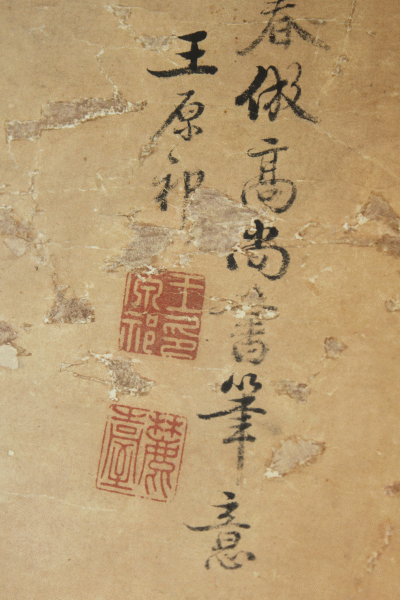 春倣高尚書筆意
王原祁
王原祁印
麓臺